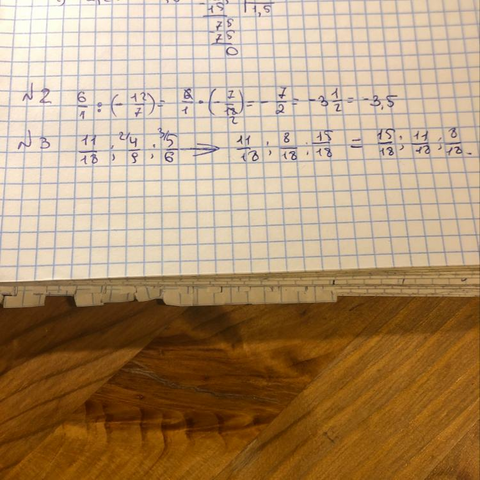 -15 | 1,5
75
-75
0
№2 6/1 : (-12/7) = 6/1 · (-7/12 2) = -7/2 = -3 1/2 = -3,5
№3 11/18 ; 2/4/9 ; 3/5/6 → 11/18 ; 8/18 ; 15/18 = 15/18 ; 11/18 ; 8/18.